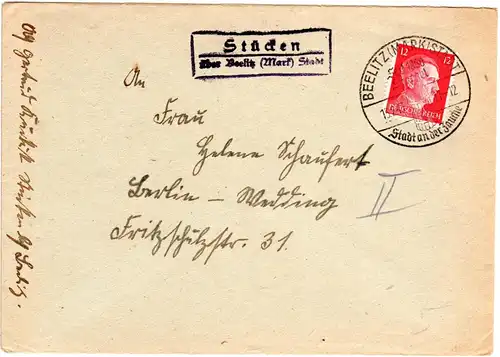 Stücken
über Beelitz (Mark) Stadt
BEELITZ (MARK) STADT
12 12
12
DEUTSCHES REICH
Stadt an der Zauche
An
Frau
Helene Schaufert
Berlin - Wedding
II
Fritzschulzstr. 31.
Abs Gertrud Stücken Beelitz.